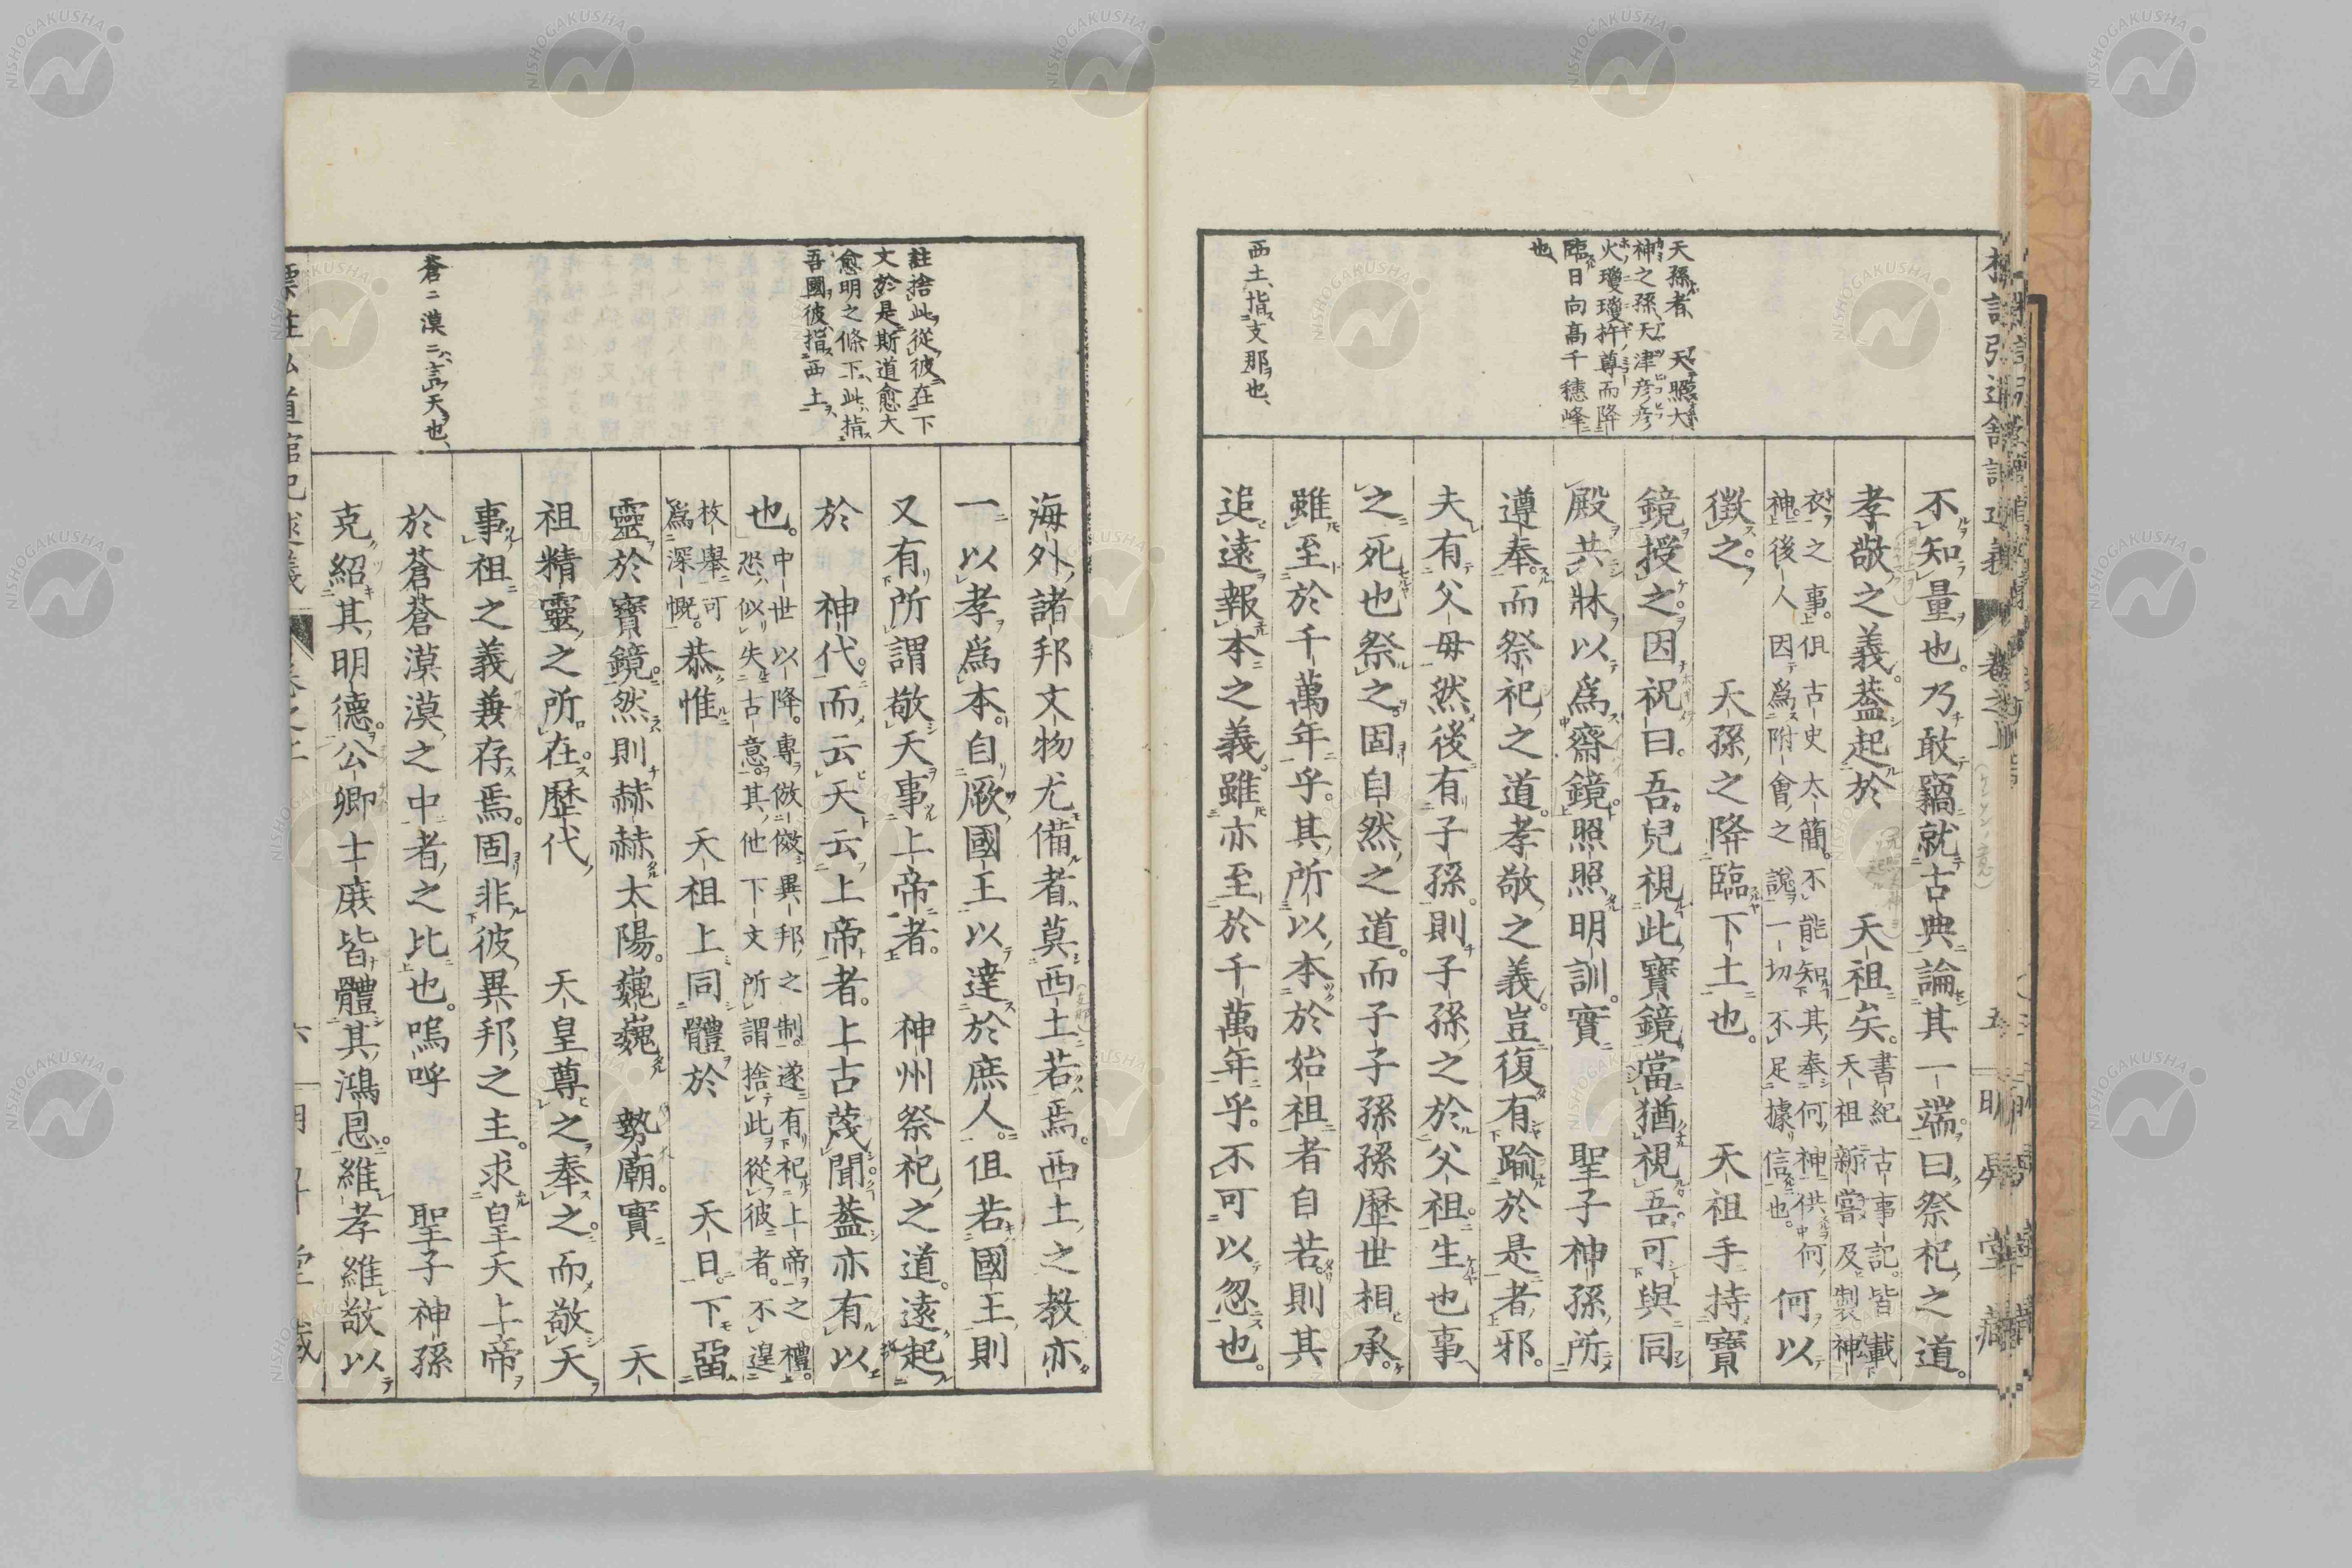 不知量也。乃敢竊就古典論其一端。曰、祭祀之道。
孝敬之義。蓋起於　天祖矣。書紀古事記。皆載天祖新嘗及製神
衣之事。但古史太簡。不能知其奉何神供何神。後人因爲附會之說。一切不足據信也。何以
徵之。　天孫之降臨下土也。　天祖手持寶
鏡授之因祝曰。吾兒視此寶鏡當猶視吾。可與同
殿共牀以爲齋鏡。照照明訓。實　聖子神孫所
遵奉。而祭祀之道。孝敬之義。豈復有踰於是者邪。
夫有父母然後有子孫。則子孫之於父祖。生也事
之死也祭之。固自然之道。而子子孫孫歷世相承。
雖至於千萬年乎。其所以本於始祖者自若。則其
追遠報本之義。雖亦至於千萬年乎。不可以忽也。
天孫者、天照大
神之孫、天津彦彦
火瓊瓊杵尊而降
臨日向高千穗峰
也、
西土、指支那也、
海外諸邦文物尤備者、莫西土若焉。西土之教亦
一以孝爲本。自厥國王以達於庶人。但若國王則
又有所謂敬天事上帝者。　神州祭祀之道。遠起
於　神代。而云天云上帝者。上古蔑聞蓋亦有以
也。中世以降。專倣傚異邦之制。遂有祀上帝之禮。恐似失古意。其他下文所謂捨此從彼者。不遑
枚舉可爲深慨。恭惟　天祖上同體於　天日。下畱
靈於寶鏡。然則赫赫太陽。巍巍　勢廟。實　天
祖精靈之所在。歷代　天皇尊之奉之。而敬天
事祖之義兼存焉。固非彼異邦之主。求皇天上帝
於蒼蒼漠漠之中者之比也。嗚呼　聖子神孫
克紹其明德。公卿士庶皆體其鴻恩。維孝維敬以
註捨此從彼在下
文於是斯道愈大
愈明之條下、此指
吾國、彼指西土、
蒼二漠二、言天也、